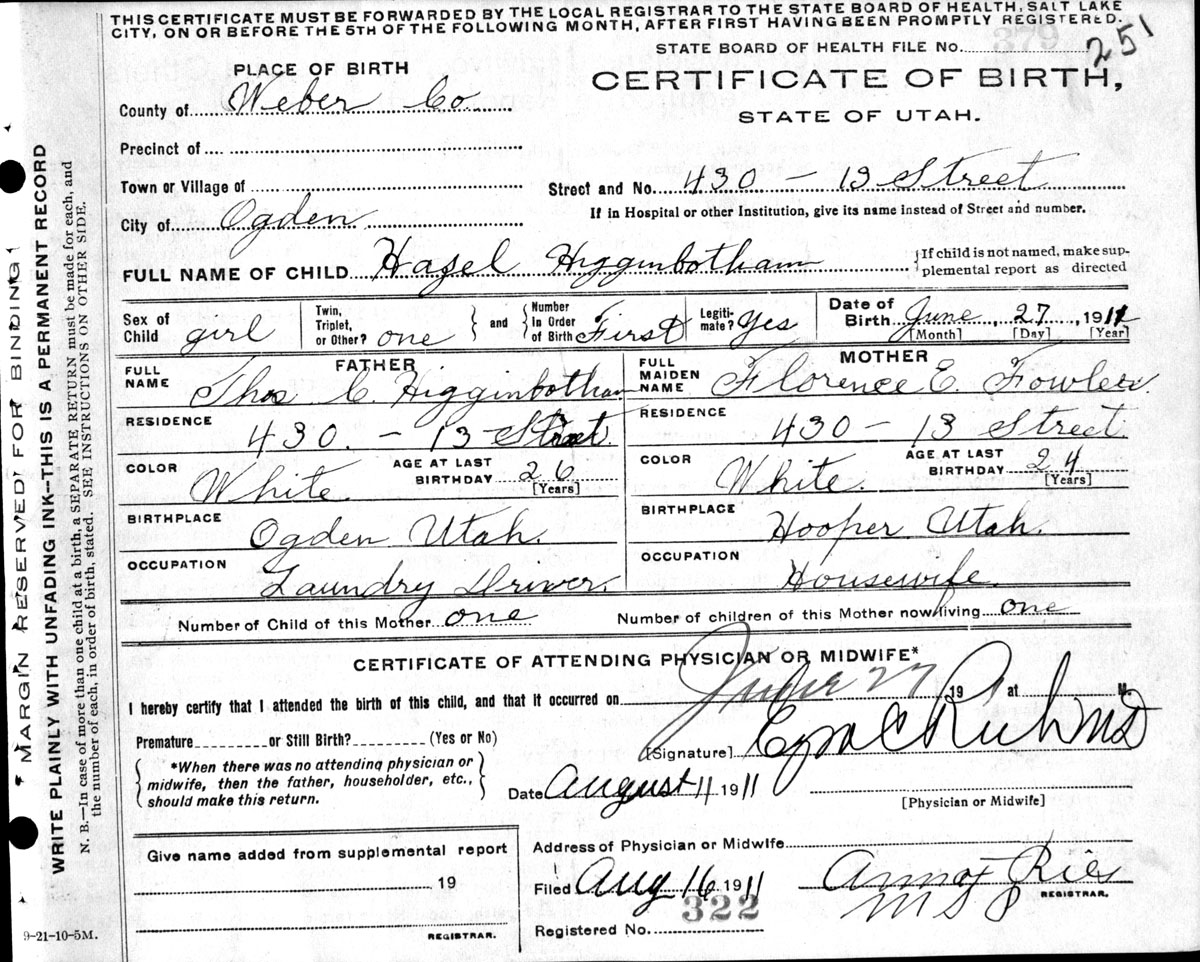 THIS CERTIFICATE MUST BE FORWARDED BY THE LOCAL REGISTRAR TO THE STATE BOARD OF HEALTH, SALT LAKE
CITY, ON OR BEFORE THE 5TH OF THE FOLLOWING MONTH, AFTER FIRST HAVING BEEN PROMPTLY REGISTERED.
STATE BOARD OF HEALTH FILE No. 379 251
PLACE OF BIRTH
CERTIFICATE OF BIRTH,
STATE OF UTAH.
County of Weber Co
Precinct of
Town or Village of
Street and No. 430 — 13 Street
City of Ogden
If in Hospital or other Institution, give its name instead of Street and number.
FULL NAME OF CHILD Hazel Higginbotham
{If child is not named, make sup-
plemental report as directed
Sex of Child girl
Twin, Triplet, or Other? one } and { Number In Order of Birth First
Legiti-mate? Yes
Date of Birth June, 27, 1911
[Month] [Day] [Year]
FATHER
FULL NAME Thos C. Higginbotham
MOTHER
FULL MAIDEN NAME Florence E. Fowler
RESIDENCE 430. — 13 Street
RESIDENCE 430 — 13 Street.
COLOR White.
AGE AT LAST BIRTHDAY 26 [Years]
COLOR White.
AGE AT LAST BIRTHDAY 24 [Years]
BIRTHPLACE Ogden Utah.
BIRTHPLACE Hooper Utah.
OCCUPATION Laundry Driver.
OCCUPATION Housewife.
Number of Child of this Mother one
Number of children of this Mother now living one
CERTIFICATE OF ATTENDING PHYSICIAN OR MIDWIFE*
I hereby certify that I attended the birth of this child, and that it occurred on June 27 19 at M.
Premature or Still Birth? (Yes or No)
[Signature] Ezra C Rich MD
{ *When there was no attending physician or
midwife, then the father, householder, etc.,
should make this return. }
Date August 11 1911
[Physician or Midwife]
Give name added from supplemental report
19
REGISTRAR.
Address of Physician or Midwife
Filed Aug 16 1911
REGISTRAR.
322
Registered No.
9-21-10-5M.
* MARGIN RESERVED FOR BINDING
WRITE PLAINLY WITH UNFADING INK—THIS IS A PERMANENT RECORD
N. B.—In case of more than one child at a birth, a SEPARATE RETURN must be made for each, and
the number of each, in order of birth, stated. SEE INSTRUCTIONS ON OTHER SIDE.